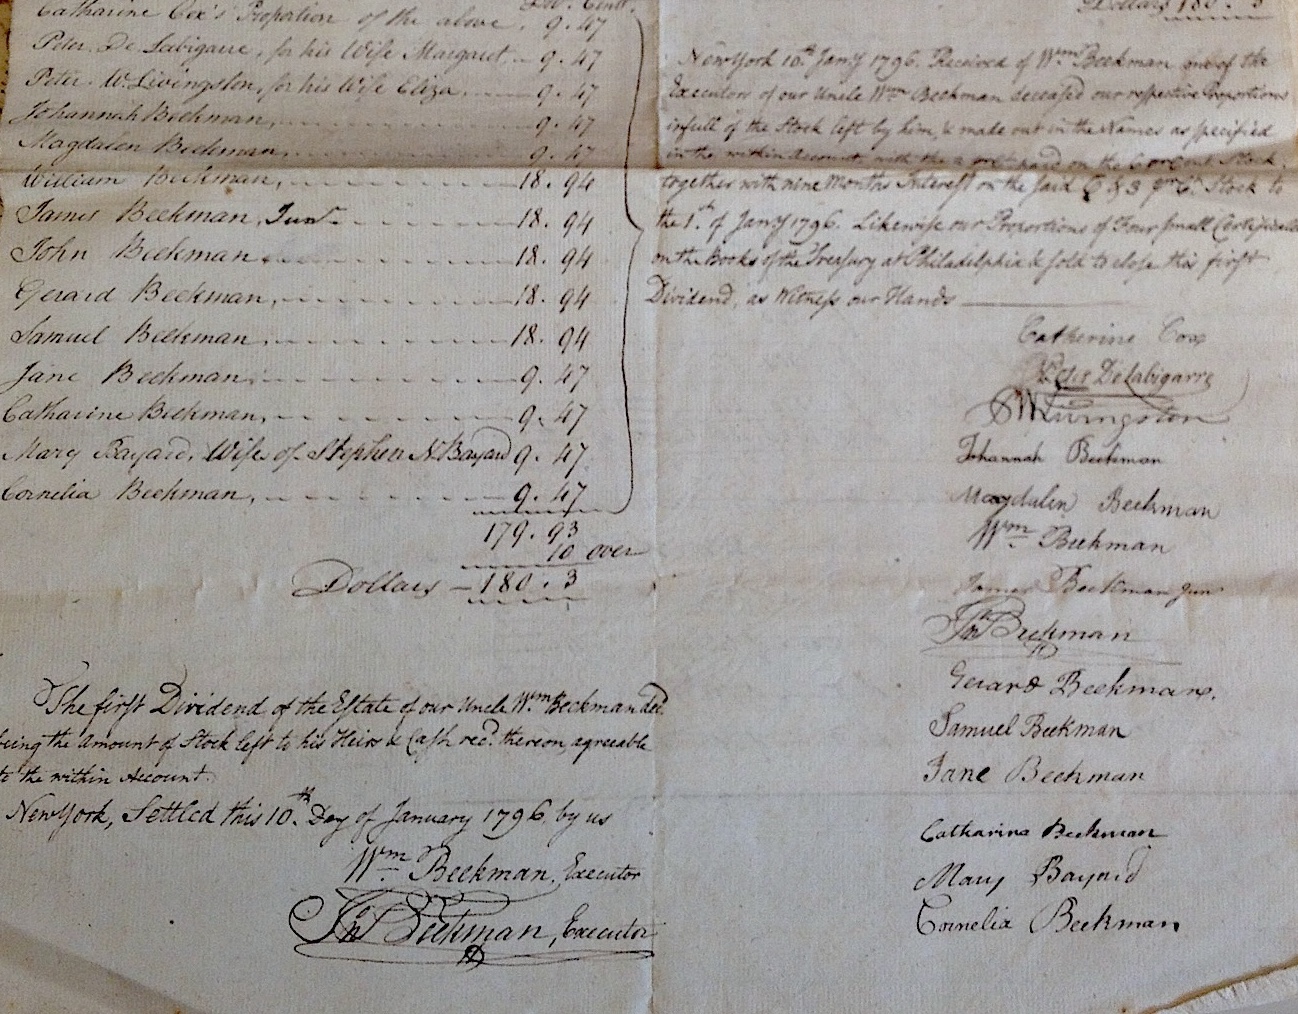 Dol. Cents.
Catharine Cox's Propotion of the above. 9. 47
Peter De Labigarre, for his Wife Margaret 9. 47
Peter W. Livingston, for his Wife Eliza 9. 47
Johannah Beekman, 9. 47
Magdalen Beekman 9. 47
William Beekman, 18. 94
James Beekman, Junr. 18. 94
John Beekman 18. 94
Gerard Beekman, 18. 94
Samuel Beekman, 18. 94
Jane Beekman 9. 47
Catharine Beekman, 9. 47
Mary Bayard, Wife of Stephen N. Bayard 9. 47
Cornelia Beekman, 9. 47
179. 93
10 over
Dollars — 180. 3
The first Dividend of the Estate of our Uncle Wm. Beekman decd.
being the amount of Stock left to his Heirs & Cash recd. thereon, agreeable
to the within Account.
New York, Settled this 10th. Day of January 1796 by us
Wm. Beekman, Executor
Jno Beekman, Executor
Dollars 180. 3
New York 10th Jany 1796. Received of Wm. Beekman one of the
Executors of our Uncle Wm Beekman deceased our respective Proportions
infull of the Stock left by him, & made out in the Names as specified
in the within Account with the paid on the 6 Stock,
together with nine Months Interest on the said 6 & 3 Stock to
the 1st. of Jany 1796. Likewise our Proportions of Four small Certificates
on the Books of the Treasury at Philadelphia & sold to close this first
Dividend, as Witness our Hands
Catherine Cox
Peter Delabigarre
PW Livingston
Johannah Beekman
Magdalen Beekman
Wm. Beekman
James Beekman Jun
Jno Beekman
Gerard Beekman.
Samuel Beekman
Jane Beekman
Catharina Beekman
Mary Bayard
Cornelia Beekman